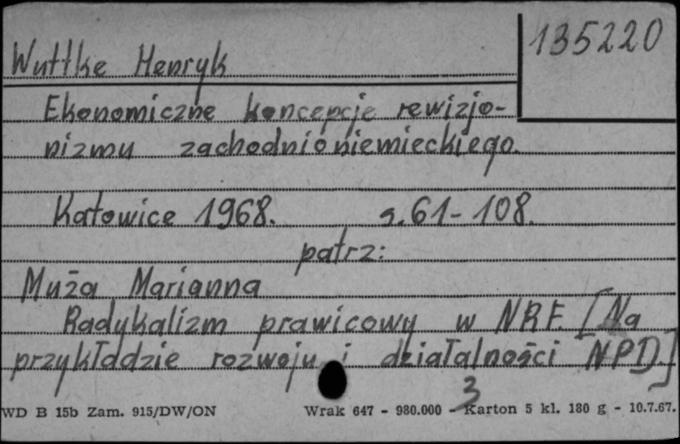 135220
Wuttke Henryk
Ekonomiczne koncepcje rewizjo-
nizmu zachodnioniemieckiego.
Katowice 1968. s. 61-108.
patrz:
Muża Marianna
Radykalizm prawicowy w NRF. [Na
przykładzie rozwoju i działalności NPD.]
3
WD B 15b Zam. 915/DW/ON Wrak 647 - 980.000 - Karton 5 kl. 180 g - 10.7.67.